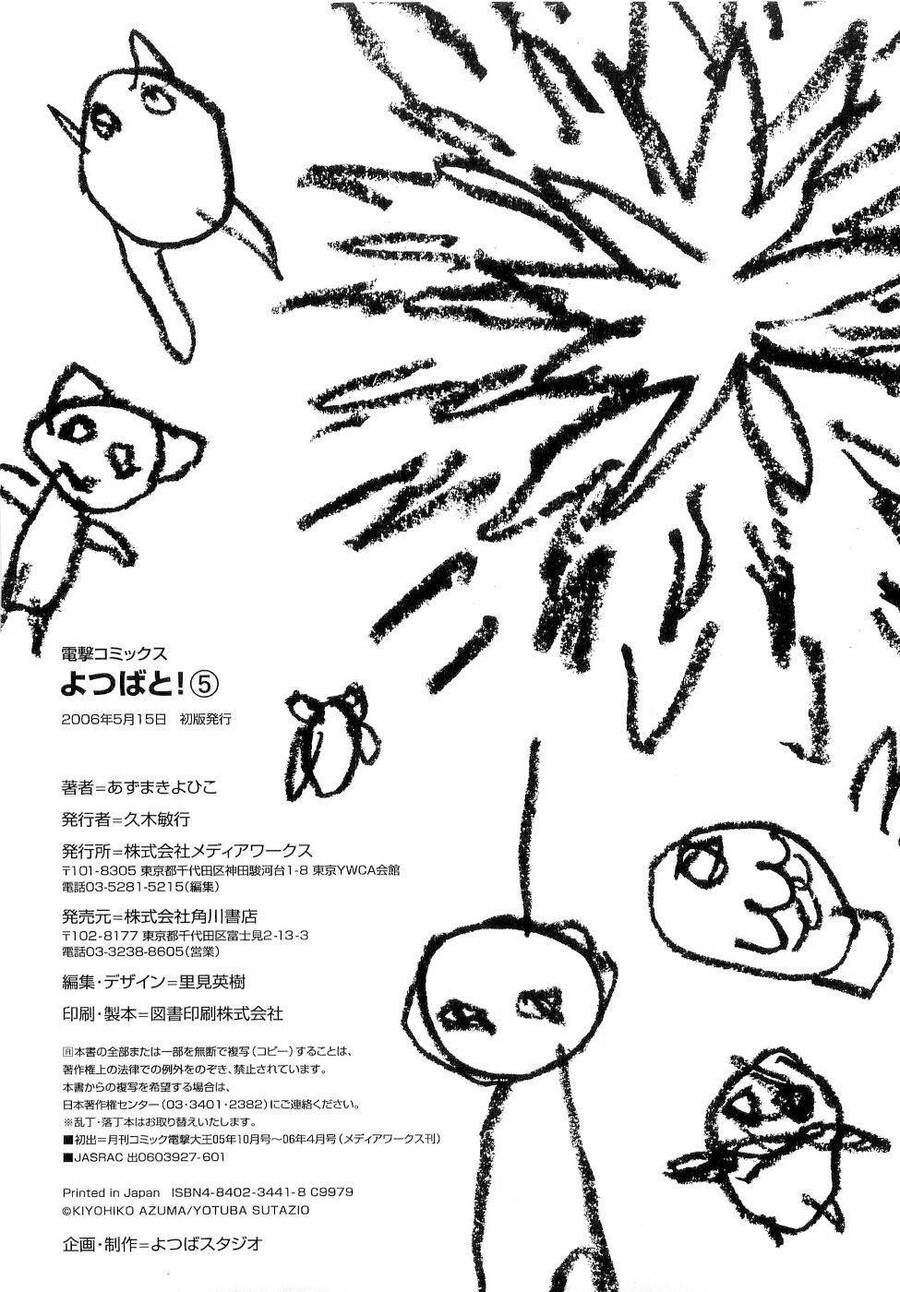 電撃コミックス
よつばと!⑤
2006年5月15日　初版発行
著者=あずまきよひこ
発行者=久木敏行
発行所=株式会社メディアワークス
〒101-8305 東京都千代田区神田駿河台1-8 東京YWCA会館
電話03-5281-5215(編集)
発売元=株式会社角川書店
〒102-8177 東京都千代田区富士見2-13-3
電話03-3238-8605(営業)
編集・デザイン=里見英樹
印刷・製本=図書印刷株式会社
本書の全部または一部を無断で複写(コピー)することは、
著作権上の法律での例外をのぞき、禁止されています。
本書からの複写を希望する場合は、
日本著作権センター(03・3401・2382)にご連絡ください。
※乱丁・落丁本はお取り替えいたします。
■初出=月刊コミック電撃大王05年10月号〜06年4月号(メディアワークス刊)
■JASRAC 出0603927-601
Printed in Japan　ISBN4-8402-3441-8 C9979
©KIYOHIKO AZUMA/YOTUBA SUTAZIO
企画・制作=よつばスタジオ